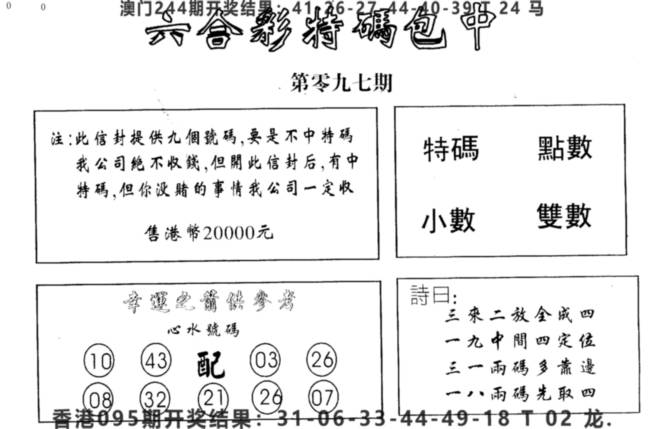 0 0
澳门244期开奖结果：41-26-27-44-40-39 T 24 马
六合彩特碼包中
第零九七期
注:此信封提供九個號碼,要是不中特碼
我公司絶不收錢,但開此信封后,有中
特碼,但你没賭的事情我公司一定收
售港幣20000元
特碼 點數
小數 雙數
幸運之籥供參考
心水號碼
10 43 配 03 26
08 32 21 26 07
詩曰:
三來二放全成四
一九中間四定位
三一兩碼多靠邊
一八兩碼先取四
香港095期开奖结果：31-06-33-44-49-18 T 02 龙.